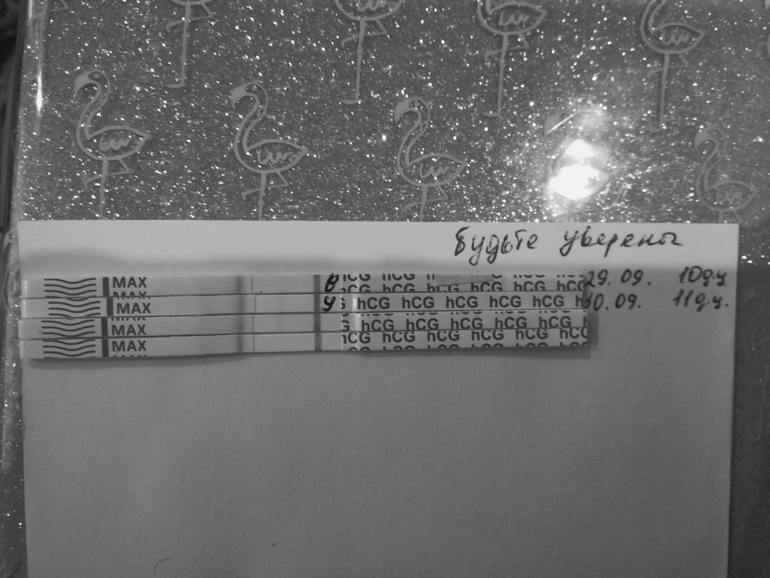 Будьте уверены
MAX В hCG hCG 29.09. 10дч.
MAX У hCG hCG hCG hCG hCG 30.09. 11дч.
MAX hCG hCG hCG hCG hCG
MAX hCG hCG hCG hCG hCG